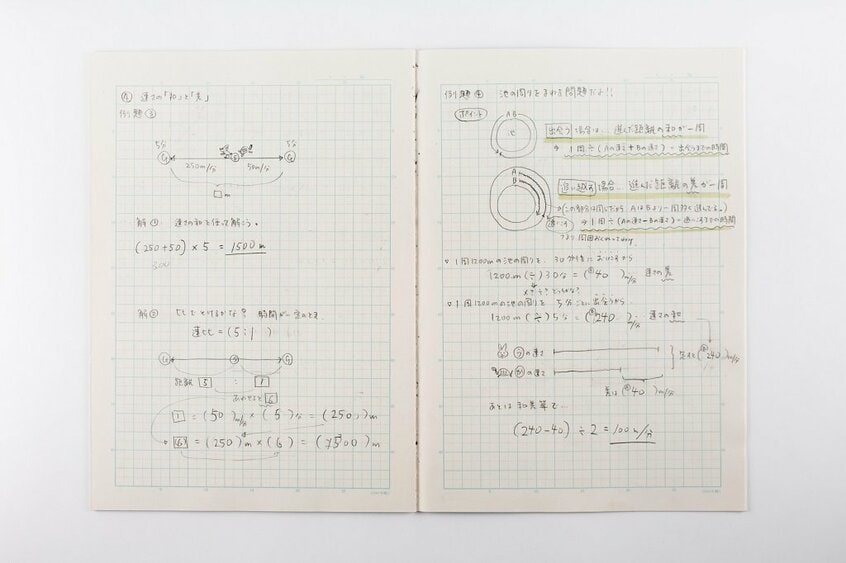 速さの「和」と「差」
例題③
5分 5分
250m/分 50m/分
□m
解① 速さの和を使って解こう。
(250+50)×5=1500m
300
解② 比でとけるかな? 時間が一定のとき、
速比=(5:1)
距離 5 : 1
あわせると6
1=(50)m/分×(5)分=(250)m
6=(250)m×(6)=(1500)m
例題④ 池の周りをまわる問題だよ!!
ポイント
A B
池
出会う場合は、進んだ距離の和が一周
⇒ 1周÷(Aの速さ+Bの速さ)=出会うまでの時間
A
B
追い越す場合、進んだ距離の差が一周
(この部分は同じだから、AはBより一周多く進んでいる。)
⇒1周÷(Aの速さ−Bの速さ)=追いこすまでの時間
1周1200mの池の周りを、30分後においこすから
1200m(÷)30分=(40)m/分 速さの差
1周1200mの池の周りを 5分ごとに出会うから、
1200m(÷)5分=(240)m/分 速さの和
の速さ
の速さ
(240)m/分
差は(40)m/分
あとは和差算で…
(240−40)÷2=100m/分